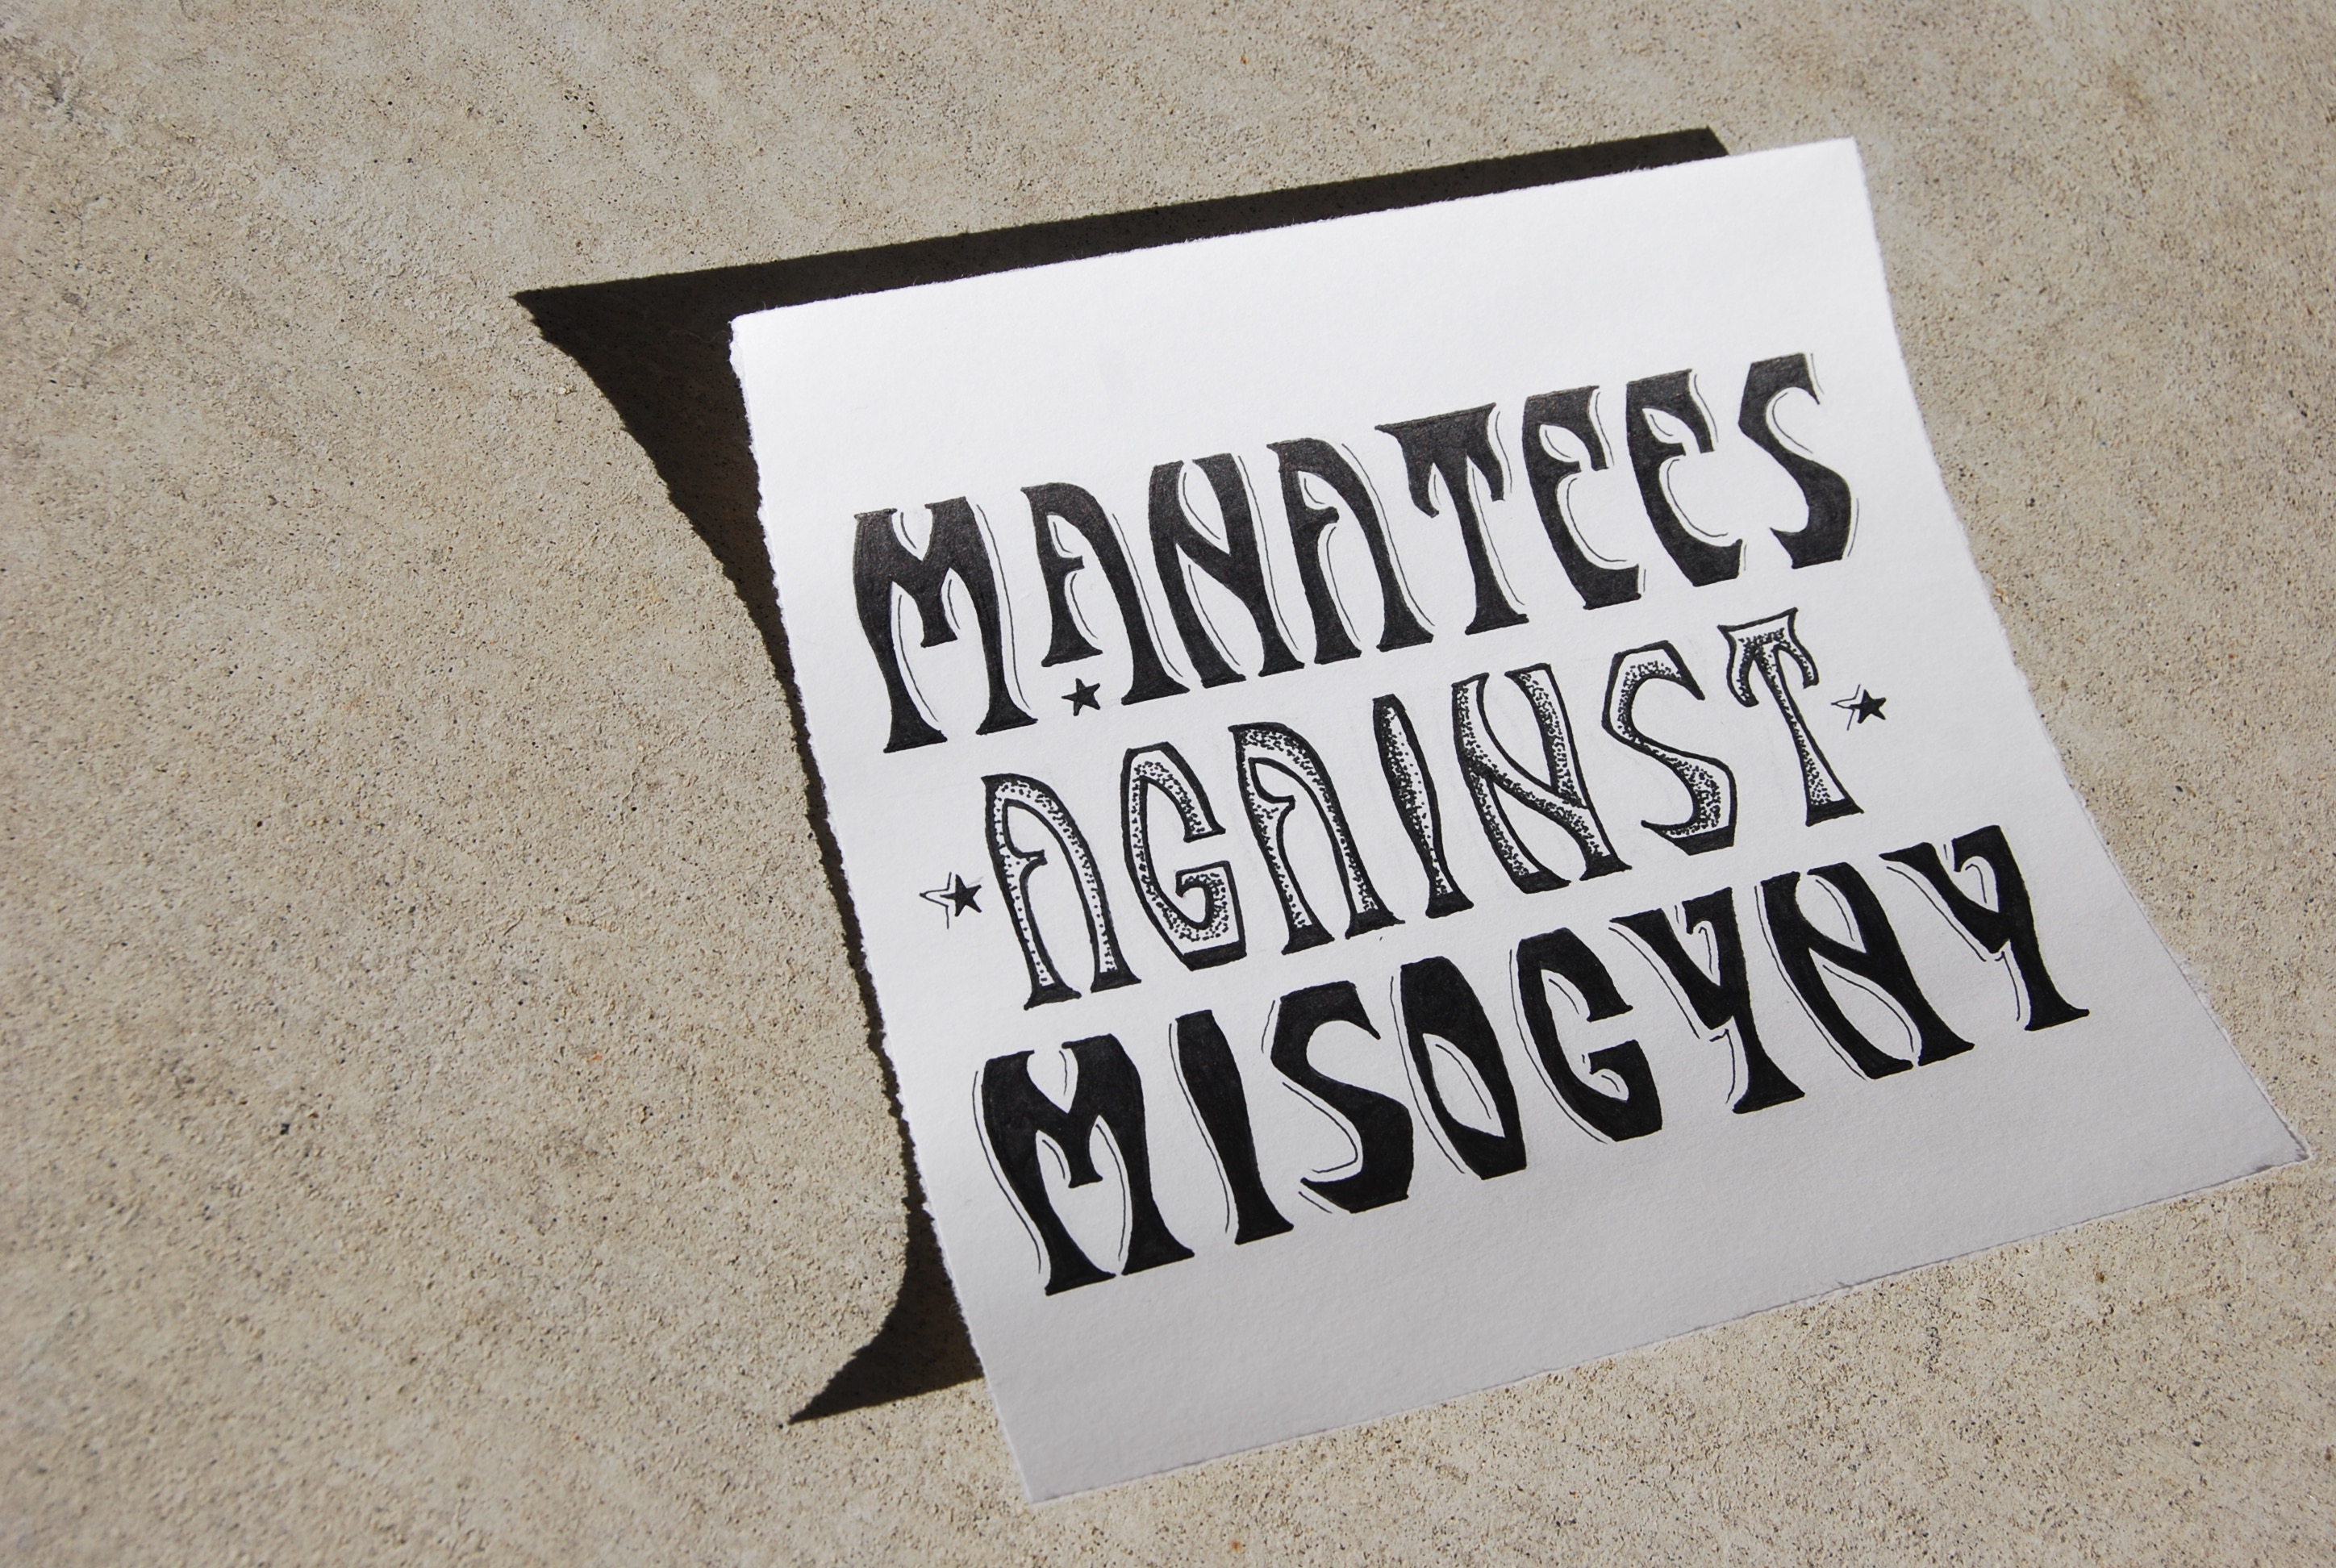 MANATEES
AGAINST
MISOGYNY